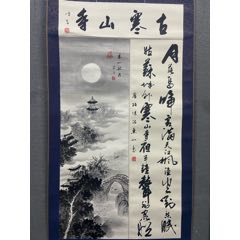 古寒山寺
月落烏啼霜滿天江楓漁火對愁眠
姑蘇城外寒山寺夜半鐘聲到客船